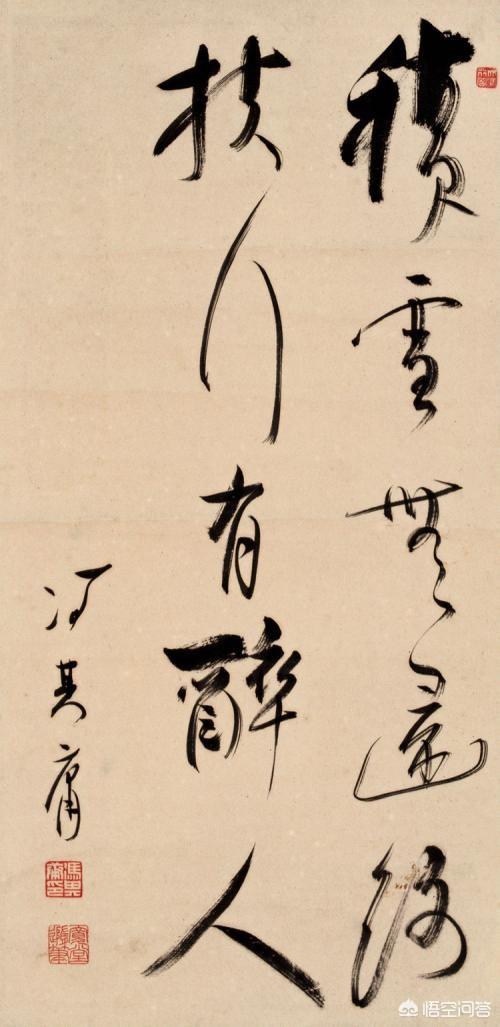 積雪無還路
扶行有醉人
冯其庸
悟空问答